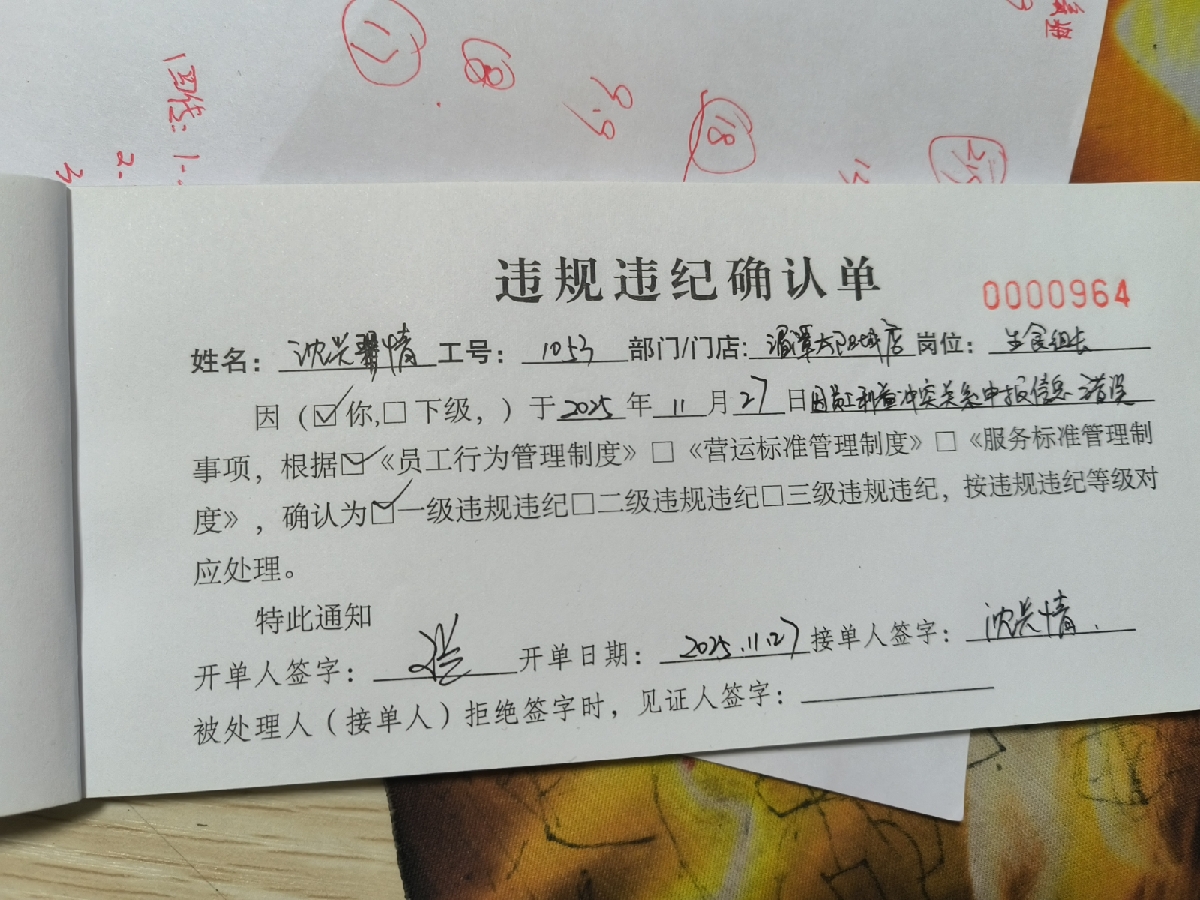 回传: 1.
2.
3
17
18
9.9
18
违规违纪确认单
0000964
姓名: 沈兴情 工号: 1053 部门/门店: 湄潭太阳城店 岗位: 主食组长
因(☑你,□下级,)于2025年11月27日因员工利益冲突关系申报信息错误
事项,根据☑《员工行为管理制度》□《营运标准管理制度》□《服务标准管理制
度》,确认为☑一级违规违纪□二级违规违纪□三级违规违纪,按违规违纪等级对
应处理。
特此通知
开单人签字: 开单日期: 2025.11.27 接单人签字: 沈兴情.
被处理人(接单人)拒绝签字时,见证人签字: